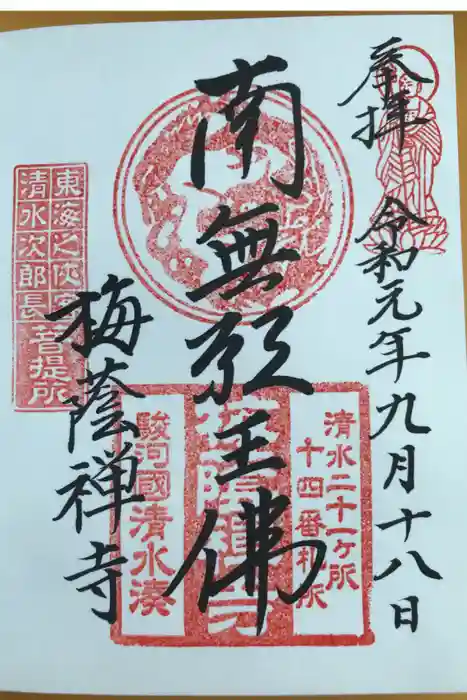 奉拝
令和元年九月十八日
南無願王佛
清水二十一ヶ所
十四番札所
駿河國清水湊
梅蔭禅寺
東海之侠客
清水次郎長
菩提所